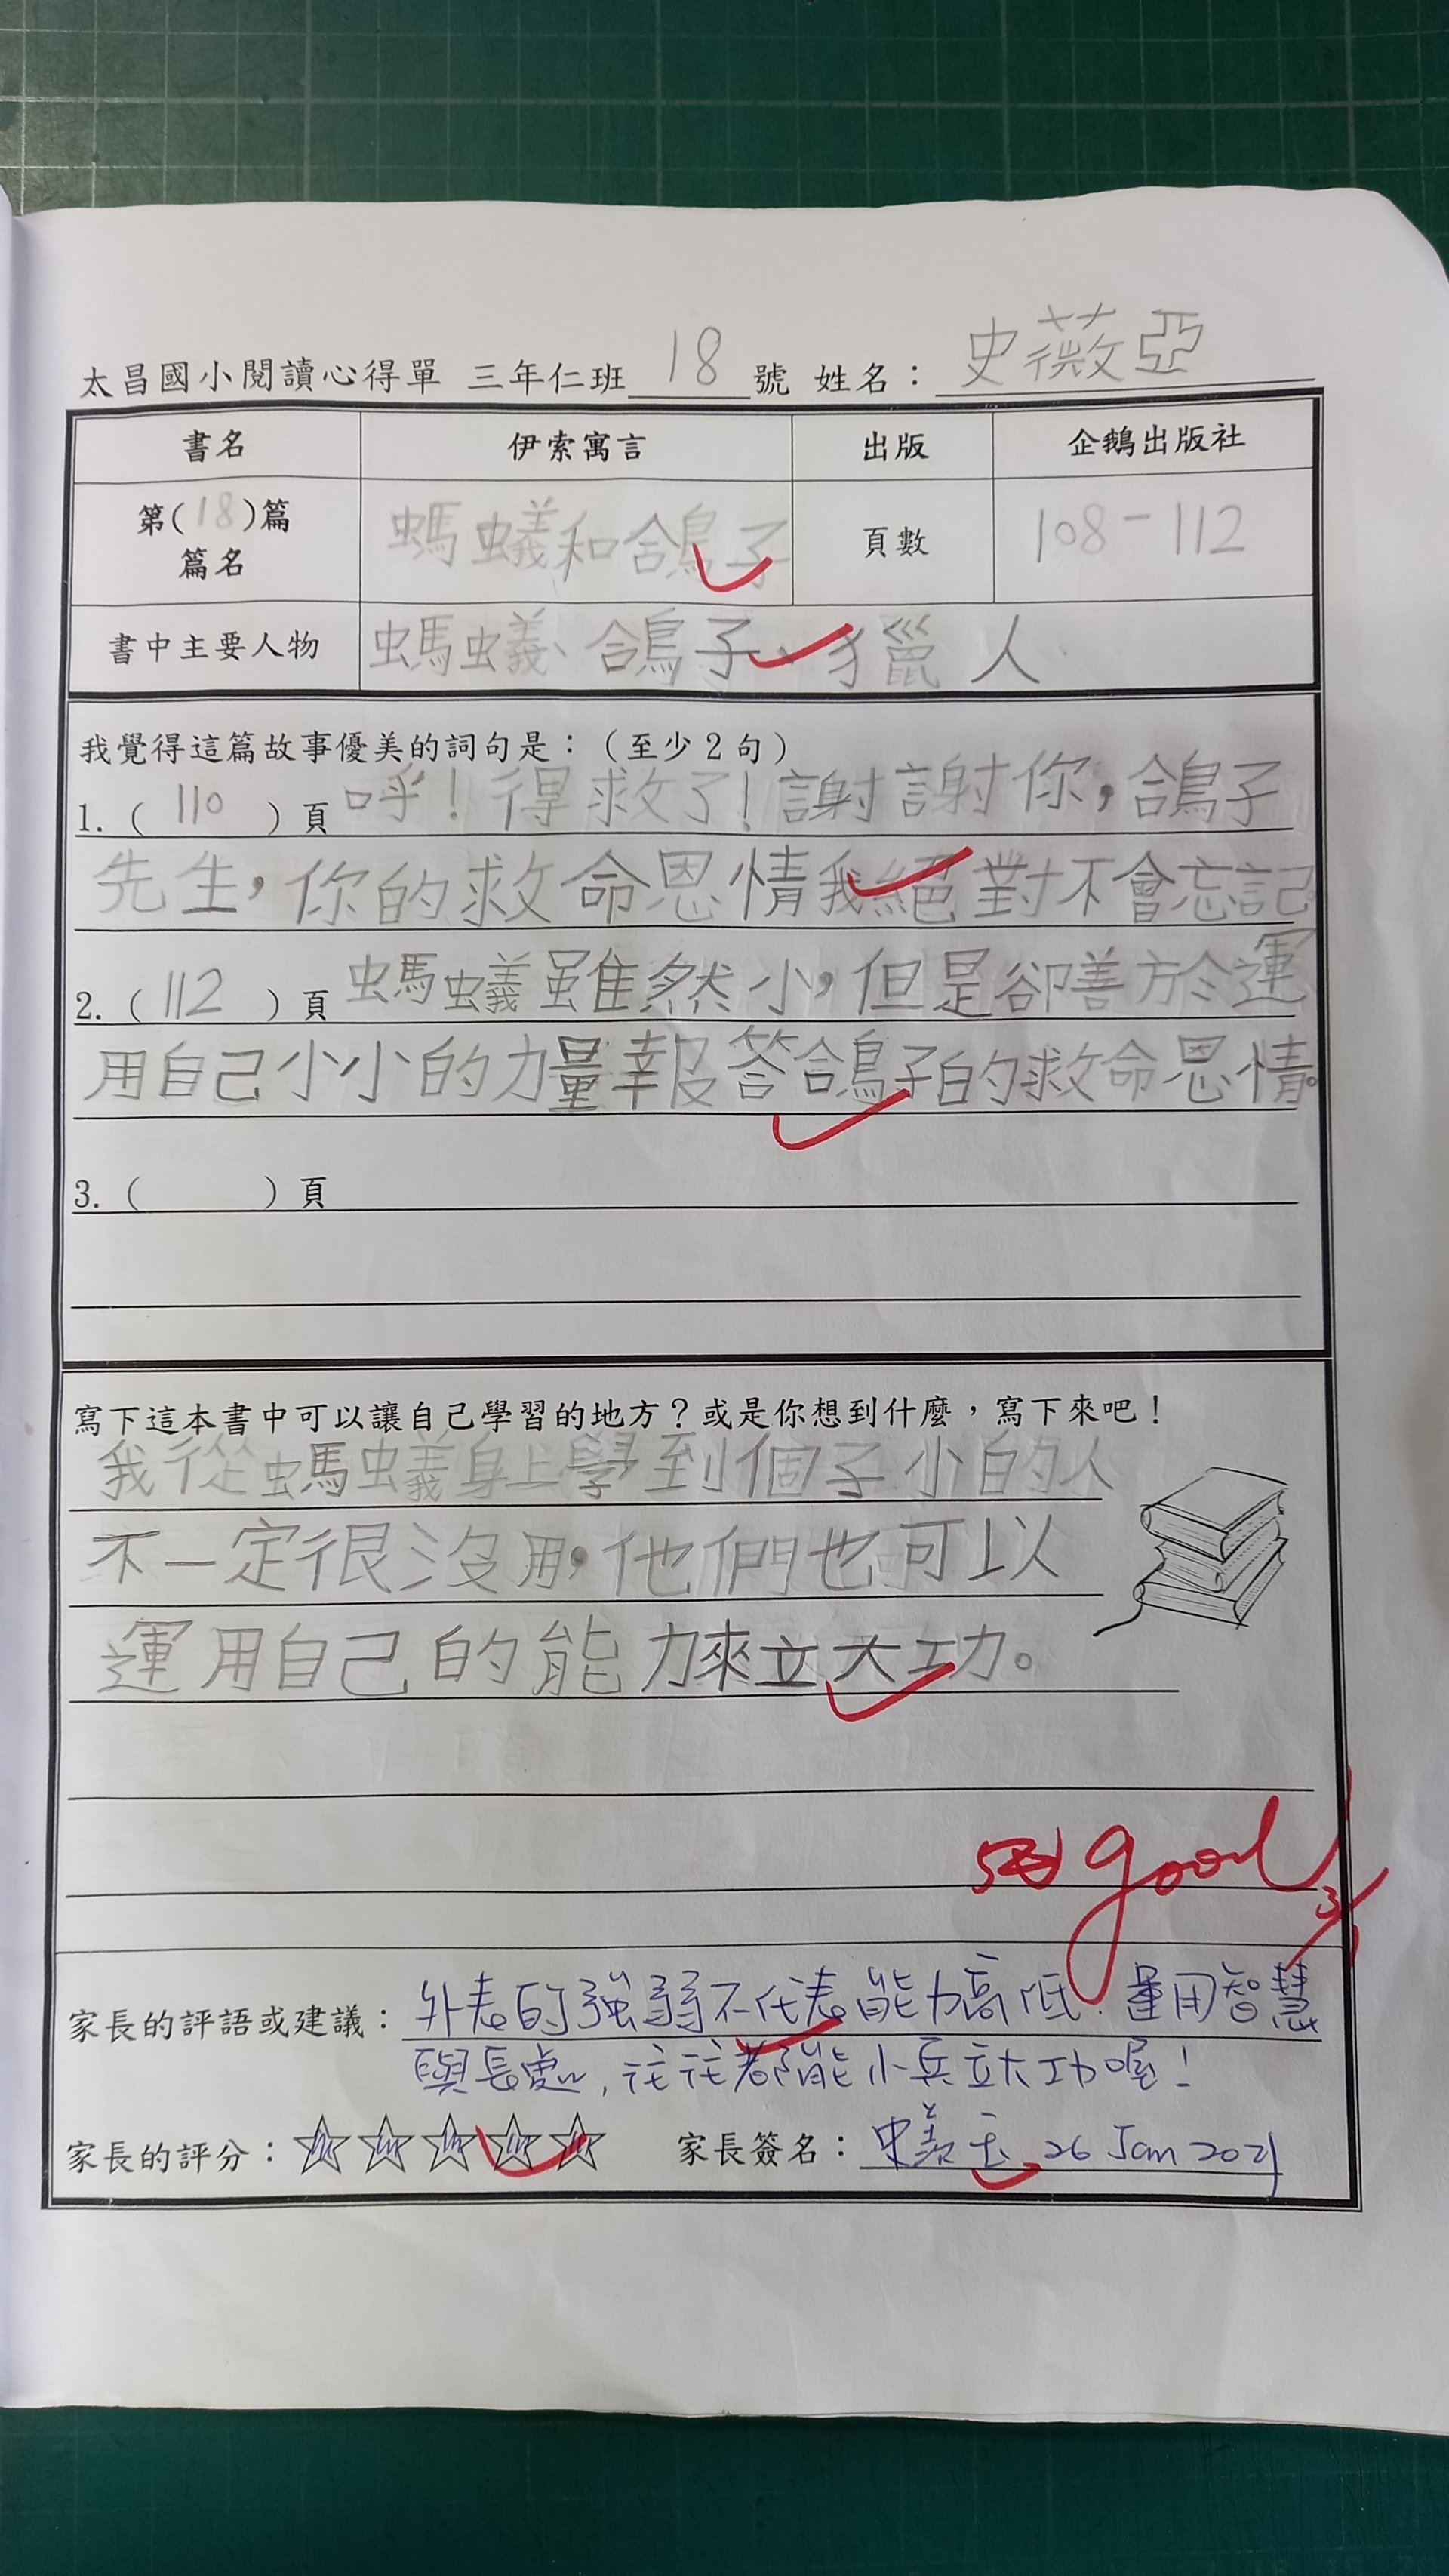 太昌國小閱讀心得單 三年仁班 18 號 姓名：史薇亞
書名 伊索寓言 出版 企鵝出版社
第(18)篇 篇名 螞蟻和鴿子 頁數 108-112
書中主要人物 螞蟻、鴿子、獵人
我覺得這篇故事優美的詞句是：（至少2句）
1.（ 110 ）頁 呼！得救了！謝謝你，鴿子
先生，你的救命恩情我絕對不會忘記
2.（ 112 ）頁 螞蟻雖然小，但是卻善於運
用自己小小的力量報答鴿子的救命恩情。
3.（ ）頁
寫下這本書中可以讓自己學習的地方？或是你想到什麼，寫下來吧！
我從螞蟻身上學到個子小的人
不一定很沒用，他們也可以
運用自己的能力來立大功。
good
家長的評語或建議：外表的強弱不代表能力高低．運用智慧
與長處，往往都能小兵立大功喔！
家長的評分：☆☆☆☆☆ 家長簽名：史 26 Jan 2021